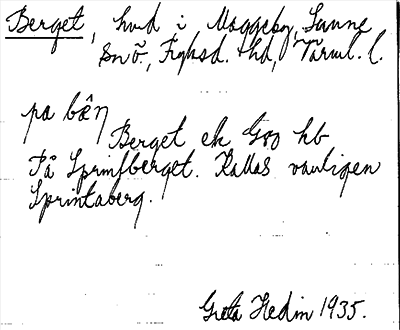 Berget, hmd i Maggeby, Sunne
sn ö., Fryksd. hd, Värml. l.
på bæ̂n
Berget ek Gsv kb
På Sprintberget. Kallas vanligen
Sprintaberg.
Greta Hedin 1935.